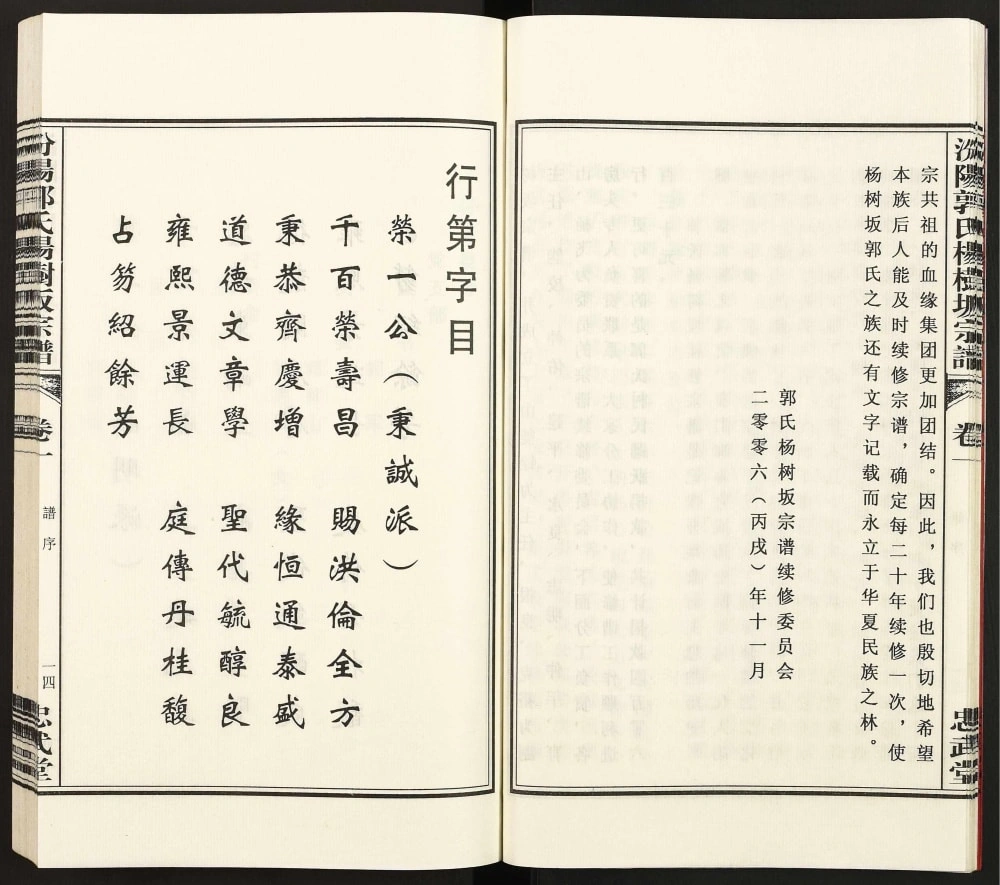 汾陽郭氏楊樹坂宗譜
卷一
忠武堂
宗共祖的血缘集团更加团结。因此，我们也殷切地希望
本族后人能及时续修宗谱，确定每二十年续修一次，使
杨树坂郭氏之族还有文字记载而永立于华夏民族之林。
郭氏杨树坂宗谱续修委员会
二零零六（丙戌）年十一月
行第字目
榮一公（秉誠派）
千百榮壽昌　賜洪倫全方
秉恭齊慶增　緣恒通泰盛
道德文章學　聖代毓醇良
雍熙景運長　庭傳丹桂馥
占笏紹餘芳
汾陽郭氏楊樹坂宗譜
卷一
譜序
一四
忠武堂